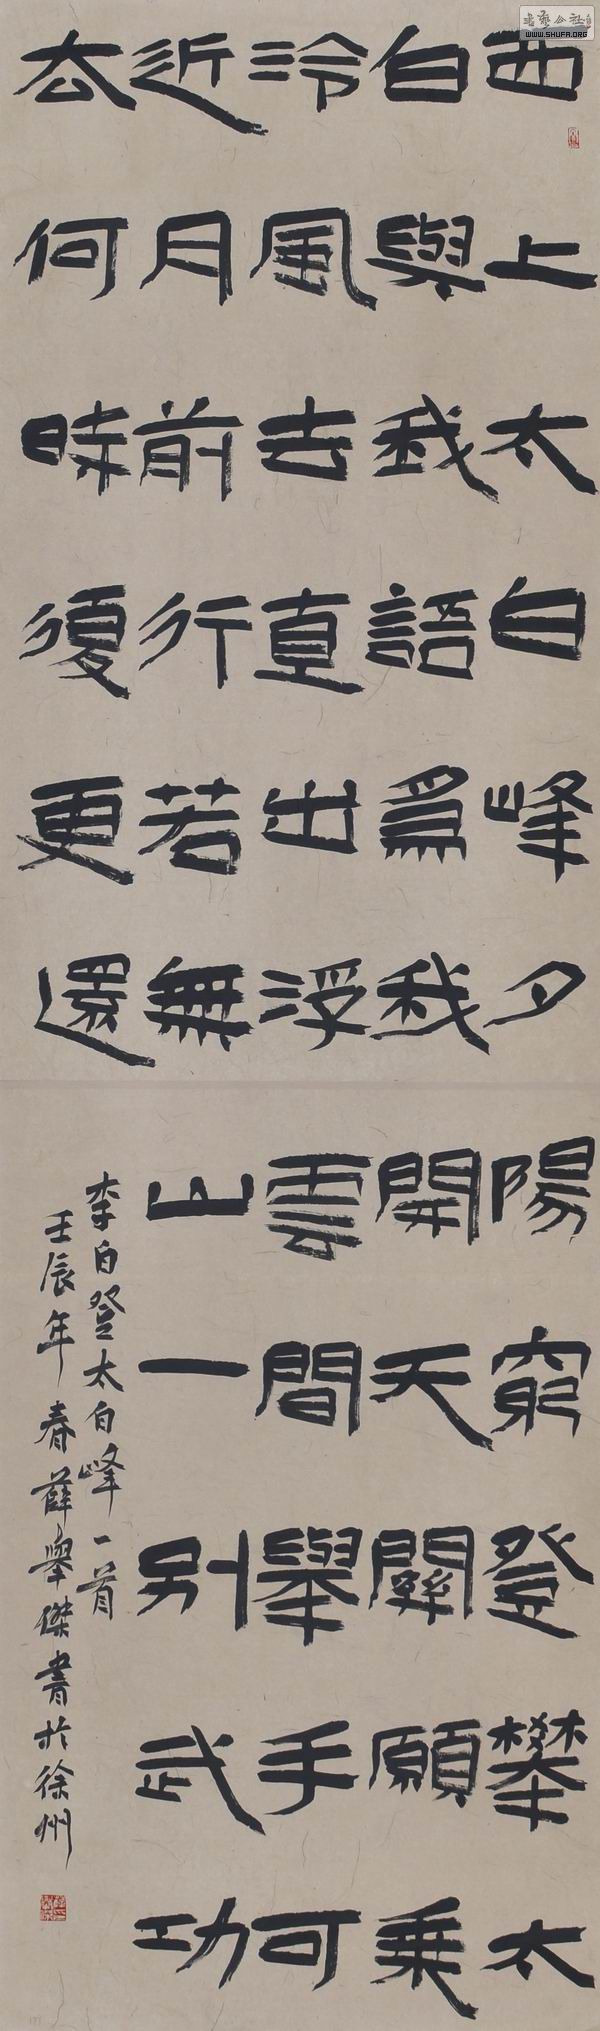 西上太白峰夕陽窮登攀太
白與我語爲我開天關願乘
泠風去直出浮雲間舉手可
近月前行若無山一別武功
去何時復更還
李白登太白峰一首
壬辰年春薛舉傑書於徐州
WWW.SHUFA.ORG